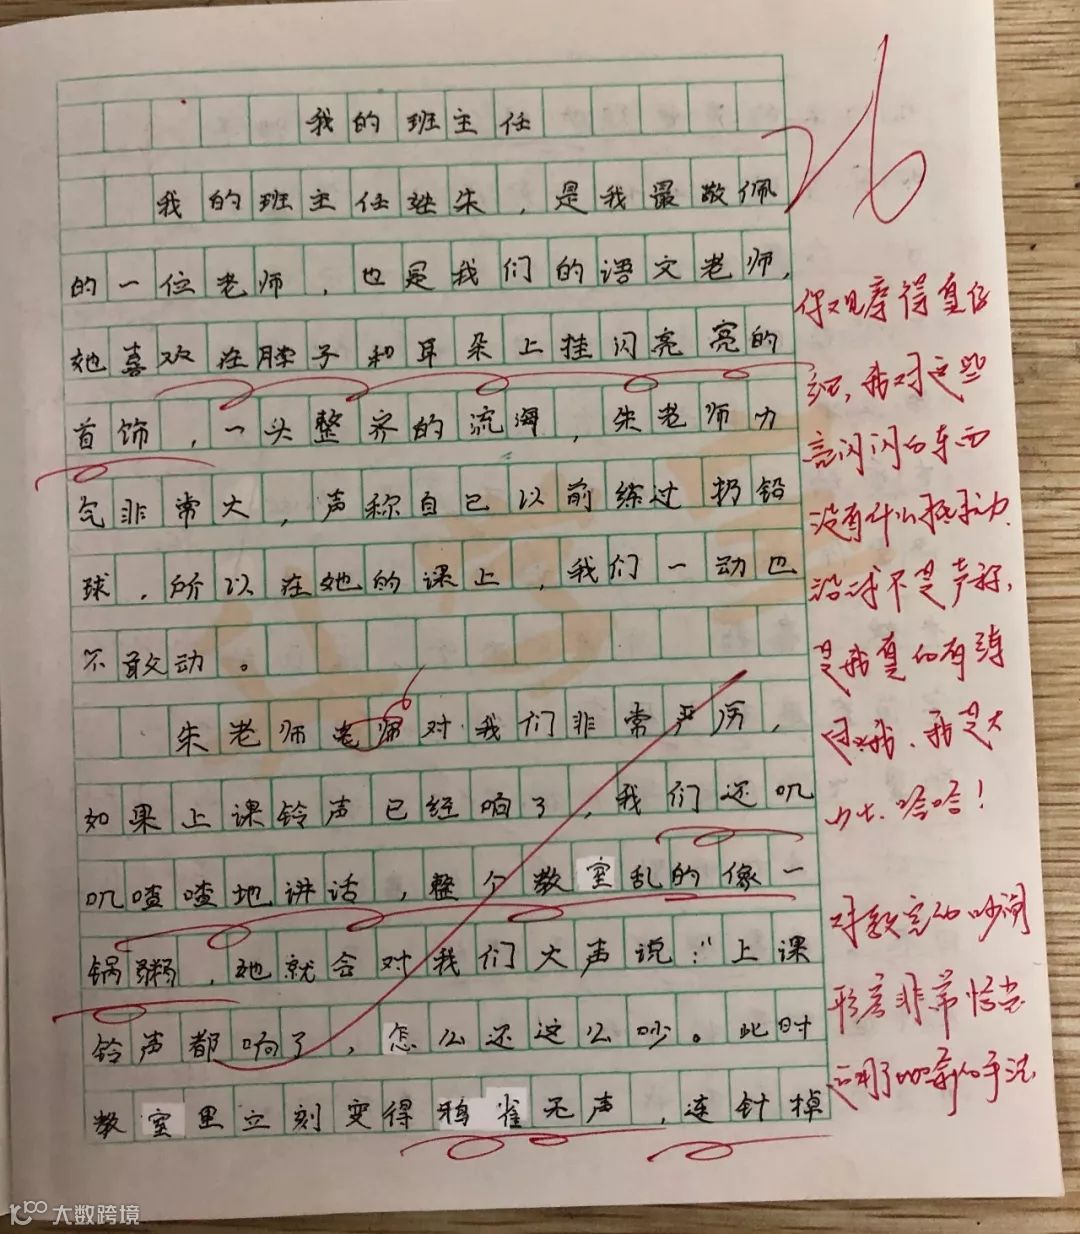 我的班主任
26
我的班主任姓朱，是我最敬佩
的一位老师，也是我们的语文老师，
她喜欢在脖子和耳朵上挂闪亮亮的
首饰，一头整齐的流海，朱老师力
气非常大，声称自己以前练过扔铅
球，所以在她的课上，我们一动也
不敢动。
朱老师老师对我们非常严厉，
如果上课铃声已经响了，我们还叽
叽喳喳地讲话，整个教室乱的像一
锅粥，她就会对我们大声说："上课
铃声都响了，怎么还这么吵。此时
教室里立刻变得鸦雀无声，连针掉
你观察得真仔
细，我对这些
亮闪闪的东西
没有什么抵抗力.
不是声称，
是我真的有练
我是大
力士.哈哈！
对教室的吵闹
形容非常恰当
运用了比喻的手法
大数跨境